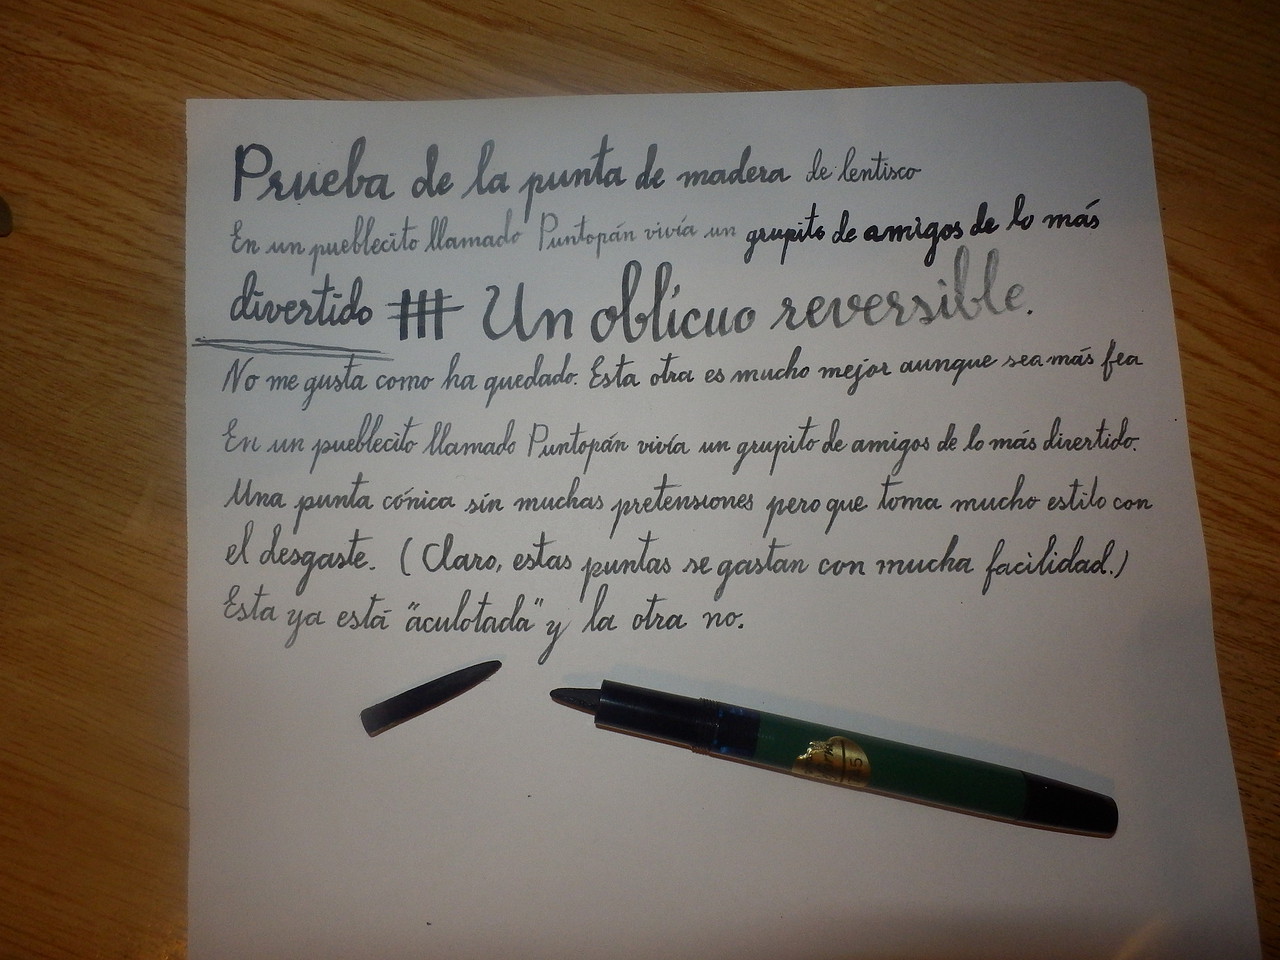 Prueba de la punta de madera de lentisco
En un pueblecito llamado Puntopán vivía un grupito de amigos de lo más
divertido # Un oblícuo reversible.
No me gusta como ha quedado. Esta otra es mucho mejor aunque sea más fea
En un pueblecito llamado Puntopán vivía un grupito de amigos de lo más divertido.
Una punta cónica sin muchas pretensiones pero que toma mucho estilo con
el desgaste. (Claro, estas puntas se gastan con mucha facilidad.)
Esta ya está "aculotada" y la otra no.